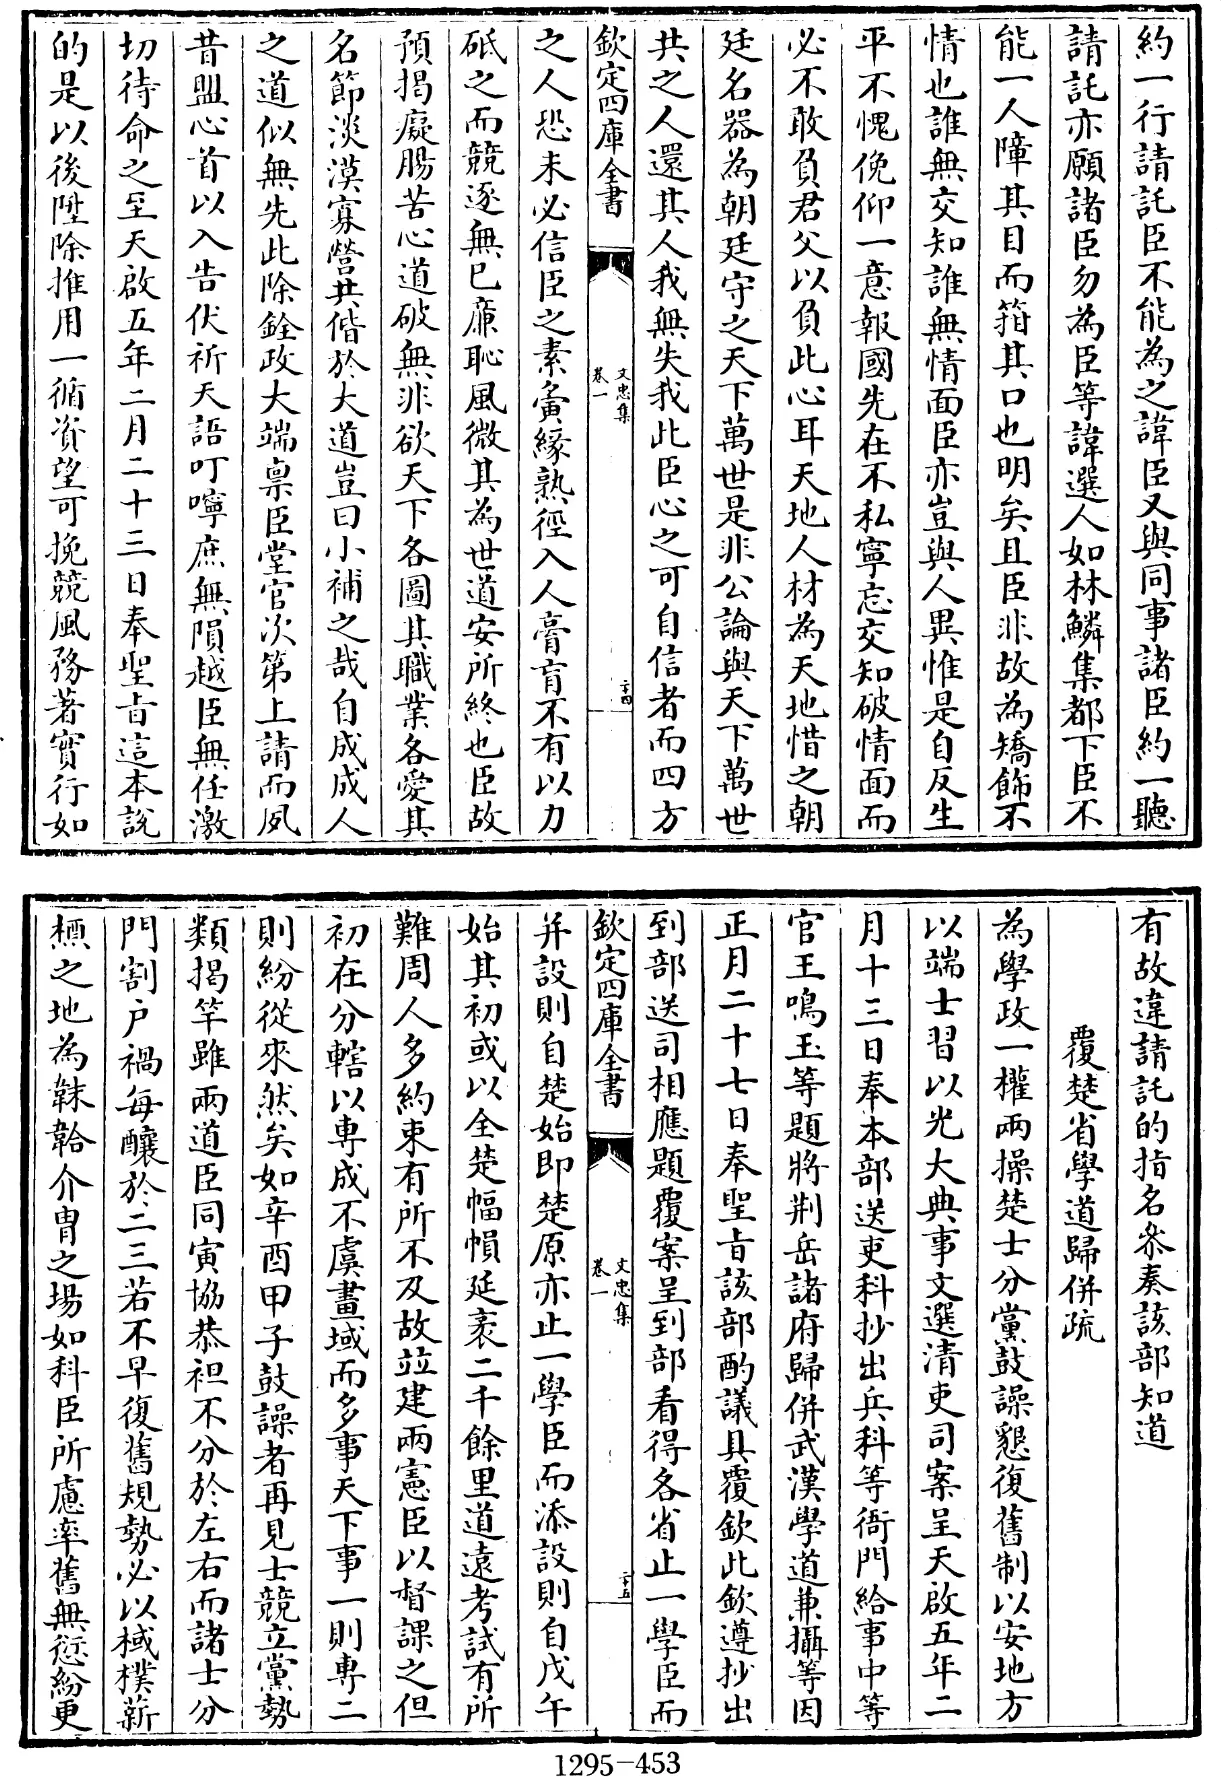 約一行請託臣不能為之諱臣又與同事諸臣約一聽
請託亦願諸臣勿為臣等諱選人如林鱗集都下臣不
能一人障其目而箝其口也明矣且臣非故為矯飾不
情也誰無交知誰無情面臣亦豈與人異惟是自反生
平不愧俛仰一意報國先在不私寧忘交知破情面而
必不敢負君父以負此心耳天地人材為天地惜之朝
廷名器為朝廷守之天下萬世是非公論與天下萬世
共之人還其人我無失我此臣心之可自信者而四方
欽定四庫全書
文忠集
卷一
二十四
之人恐未必信臣之素夤緣熟徑入人膏肓不有以力
砥之而競逐無已廉恥風微其為世道安所終也臣故
預揭癡腸苦心道破無非欲天下各圖其職業各愛其
名節淡漠寡營共偕於大道豈曰小補之哉自成成人
之道似無先此除銓政大端稟臣堂官次第上請而夙
昔盟心首以入告伏祈天語叮嚀庶無隕越臣無任激
切待命之至天啟五年二月二十三日奉聖旨這本說
的是以後陞除推用一循資望可挽競風務著實行如
有故違請託的指名叅奏該部知道
覆楚省學道歸併疏
為學政一權兩操楚士分黨鼓譟懇復舊制以安地方
以端士習以光大典事文選清吏司案呈天啟五年二
月十三日奉本部送吏科抄出兵科等衙門給事中等
官王鳴玉等題將荆岳諸府歸併武漢學道兼攝等因
正月二十七日奉聖旨該部酌議具覆欽此欽遵抄出
到部送司相應題覆案呈到部看得各省止一學臣而
欽定四庫全書
文忠集
卷一
二十五
并設則自楚始即楚原亦止一學臣而添設則自戊午
始其初或以全楚幅幀延袤二千餘里道遠考試有所
難周人多約束有所不及故並建兩憲臣以督課之但
初在分轄以專成不虞畫域而多事天下事一則專二
則紛從來然矣如辛酉甲子鼓譟者再見士競立黨勢
類揭竿雖兩道臣同寅協恭袒不分於左右而諸士分
門割户禍每釀於二三若不早復舊規勢必以棫樸薪
槱之地為韎韐介胄之場如科臣所慮率舊無愆紛更
1295-453